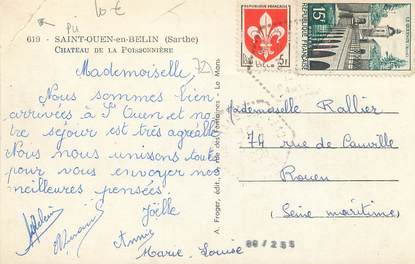 Pli 10 €
619 - SAINT-OUEN-en-BELIN (Sarthe)
CHATEAU DE LA POISSONNIÈRE
72
Mademoiselle,
Nous sommes bien
arrivées à St Ouen et no-
tre séjour est très agréable
Nous nous unissons toutes
pour vous envoyer nos
meilleures pensées.
Joëlle
Annie
Marie-Louise
A. Froger, édit., des Fontaines - Le Mans
5F
15F
Mademoiselle Rallier
74 rue de
Rouen
(Seine maritime)